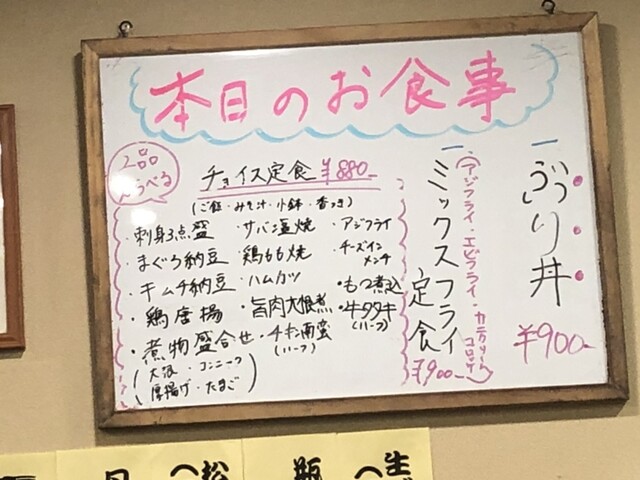 本日のお食事
一ぶっかり丼
¥900-
一ミックスフライ定食
(アジフライ・エビフライ・カニクリームコロッケ)
¥900-
2品
えらべる
チョイス定食 ¥880-
(ご飯・みそ汁・小鉢・香つき)
・刺身3点盛 ・サバ塩焼 ・アジフライ
・まぐろ納豆 ・鶏もも焼 ・チーズインメンチ
・キムチ納豆 ・ハムカツ ・もつ煮込
・鶏唐揚 ・旨肉大根煮 ・牛タタキ(ハーフ)
・煮物盛合せ ・チキン南蛮(ハーフ)
(大根・コンニャク
厚揚げ・たまご)